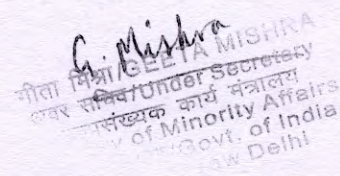 G. Mishra
गीता मिश्रा/GEETA MISHRA
अवर सचिव/Under Secretary
संख्यक कार्य मंत्रालय
of Minority Affairs
Govt. of India
Delhi